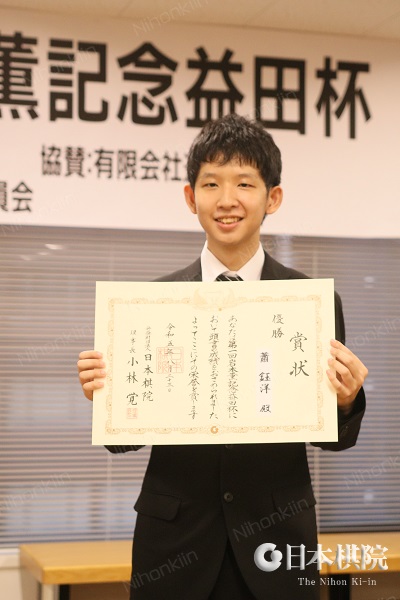 薫記念益田杯
協賛:有限会社
員会
賞状
優勝
蕭 鈺洋 殿
あなたは第一回岩本薫記念益田杯に
おいて頭書の成績をおさめられました
よってここにその栄誉を賞します
令和五年八月
日本棋院
理事長 小林 覚
日本棋院
The Nihon Ki-in
Nihonkiin